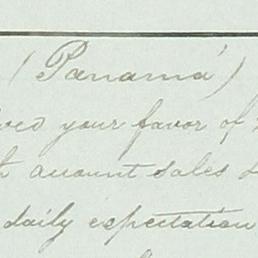 (Panamá)
your favor of
account sales
daily expectation